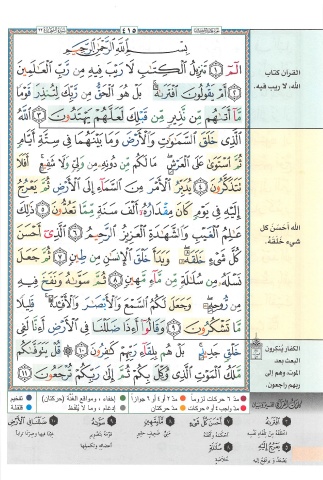 ٤١٥
بِسْمِ اللَّهِ الرَّحْمَٰنِ الرَّحِيمِ
الٓمٓ ١ تَنزِيلُ الْكِتَٰبِ لَا رَيْبَ فِيهِ مِن رَّبِّ الْعَٰلَمِينَ
٢ أَمْ يَقُولُونَ افْتَرَىٰهُ بَلْ هُوَ الْحَقُّ مِن رَّبِّكَ لِتُنذِرَ قَوْمًا
مَّآ أَتَىٰهُم مِّن نَّذِيرٍ مِّن قَبْلِكَ لَعَلَّهُمْ يَهْتَدُونَ ٣ اللَّهُ
الَّذِى خَلَقَ السَّمَٰوَٰتِ وَالْأَرْضَ وَمَا بَيْنَهُمَا فِى سِتَّةِ أَيَّامٍ
ثُمَّ اسْتَوَىٰ عَلَى الْعَرْشِ مَا لَكُم مِّن دُونِهِ مِن وَلِىٍّ وَلَا شَفِيعٍ أَفَلَا
تَتَذَكَّرُونَ ٤ يُدَبِّرُ الْأَمْرَ مِنَ السَّمَآءِ إِلَى الْأَرْضِ ثُمَّ يَعْرُجُ
إِلَيْهِ فِى يَوْمٍ كَانَ مِقْدَارُهُ أَلْفَ سَنَةٍ مِّمَّا تَعُدُّونَ ٥ ذَٰلِكَ
عَٰلِمُ الْغَيْبِ وَالشَّهَٰدَةِ الْعَزِيزُ الرَّحِيمُ ٦ الَّذِى أَحْسَنَ
كُلَّ شَىْءٍ خَلَقَهُ وَبَدَأَ خَلْقَ الْإِنسَٰنِ مِن طِينٍ ٧ ثُمَّ جَعَلَ
نَسْلَهُ مِن سُلَٰلَةٍ مِّن مَّآءٍ مَّهِينٍ ٨ ثُمَّ سَوَّىٰهُ وَنَفَخَ فِيهِ
مِن رُّوحِهِ وَجَعَلَ لَكُمُ السَّمْعَ وَالْأَبْصَٰرَ وَالْأَفْـِٔدَةَ قَلِيلًا
مَّا تَشْكُرُونَ ٩ وَقَالُوٓا أَءِذَا ضَلَلْنَا فِى الْأَرْضِ أَءِنَّا لَفِى
خَلْقٍ جَدِيدٍ بَلْ هُم بِلِقَآءِ رَبِّهِمْ كَٰفِرُونَ ١٠ قُلْ يَتَوَفَّىٰكُم
مَّلَكُ الْمَوْتِ الَّذِى وُكِّلَ بِكُمْ ثُمَّ إِلَىٰ رَبِّكُمْ تُرْجَعُونَ ١١
القرآن كتاب
الله، لا ريب فيه.
الله أحْسَنَ كل
شيء خَلَقَهُ.
الكفار يُنكرون
البعث بعد
الموت، وهم إلى
ربهم راجعون.
مدّ ٦ حركات لزوماً
مدّ ٢ أو ٤ أو ٦ جوازاً
إخفاء، ومواقع الغُنَّة (حركتان)
تفخيم
مدّ واجب ٤ أو ٥ حركات
مدّ حركتان
إدغام، وما لا يُلفظ
قلقلة